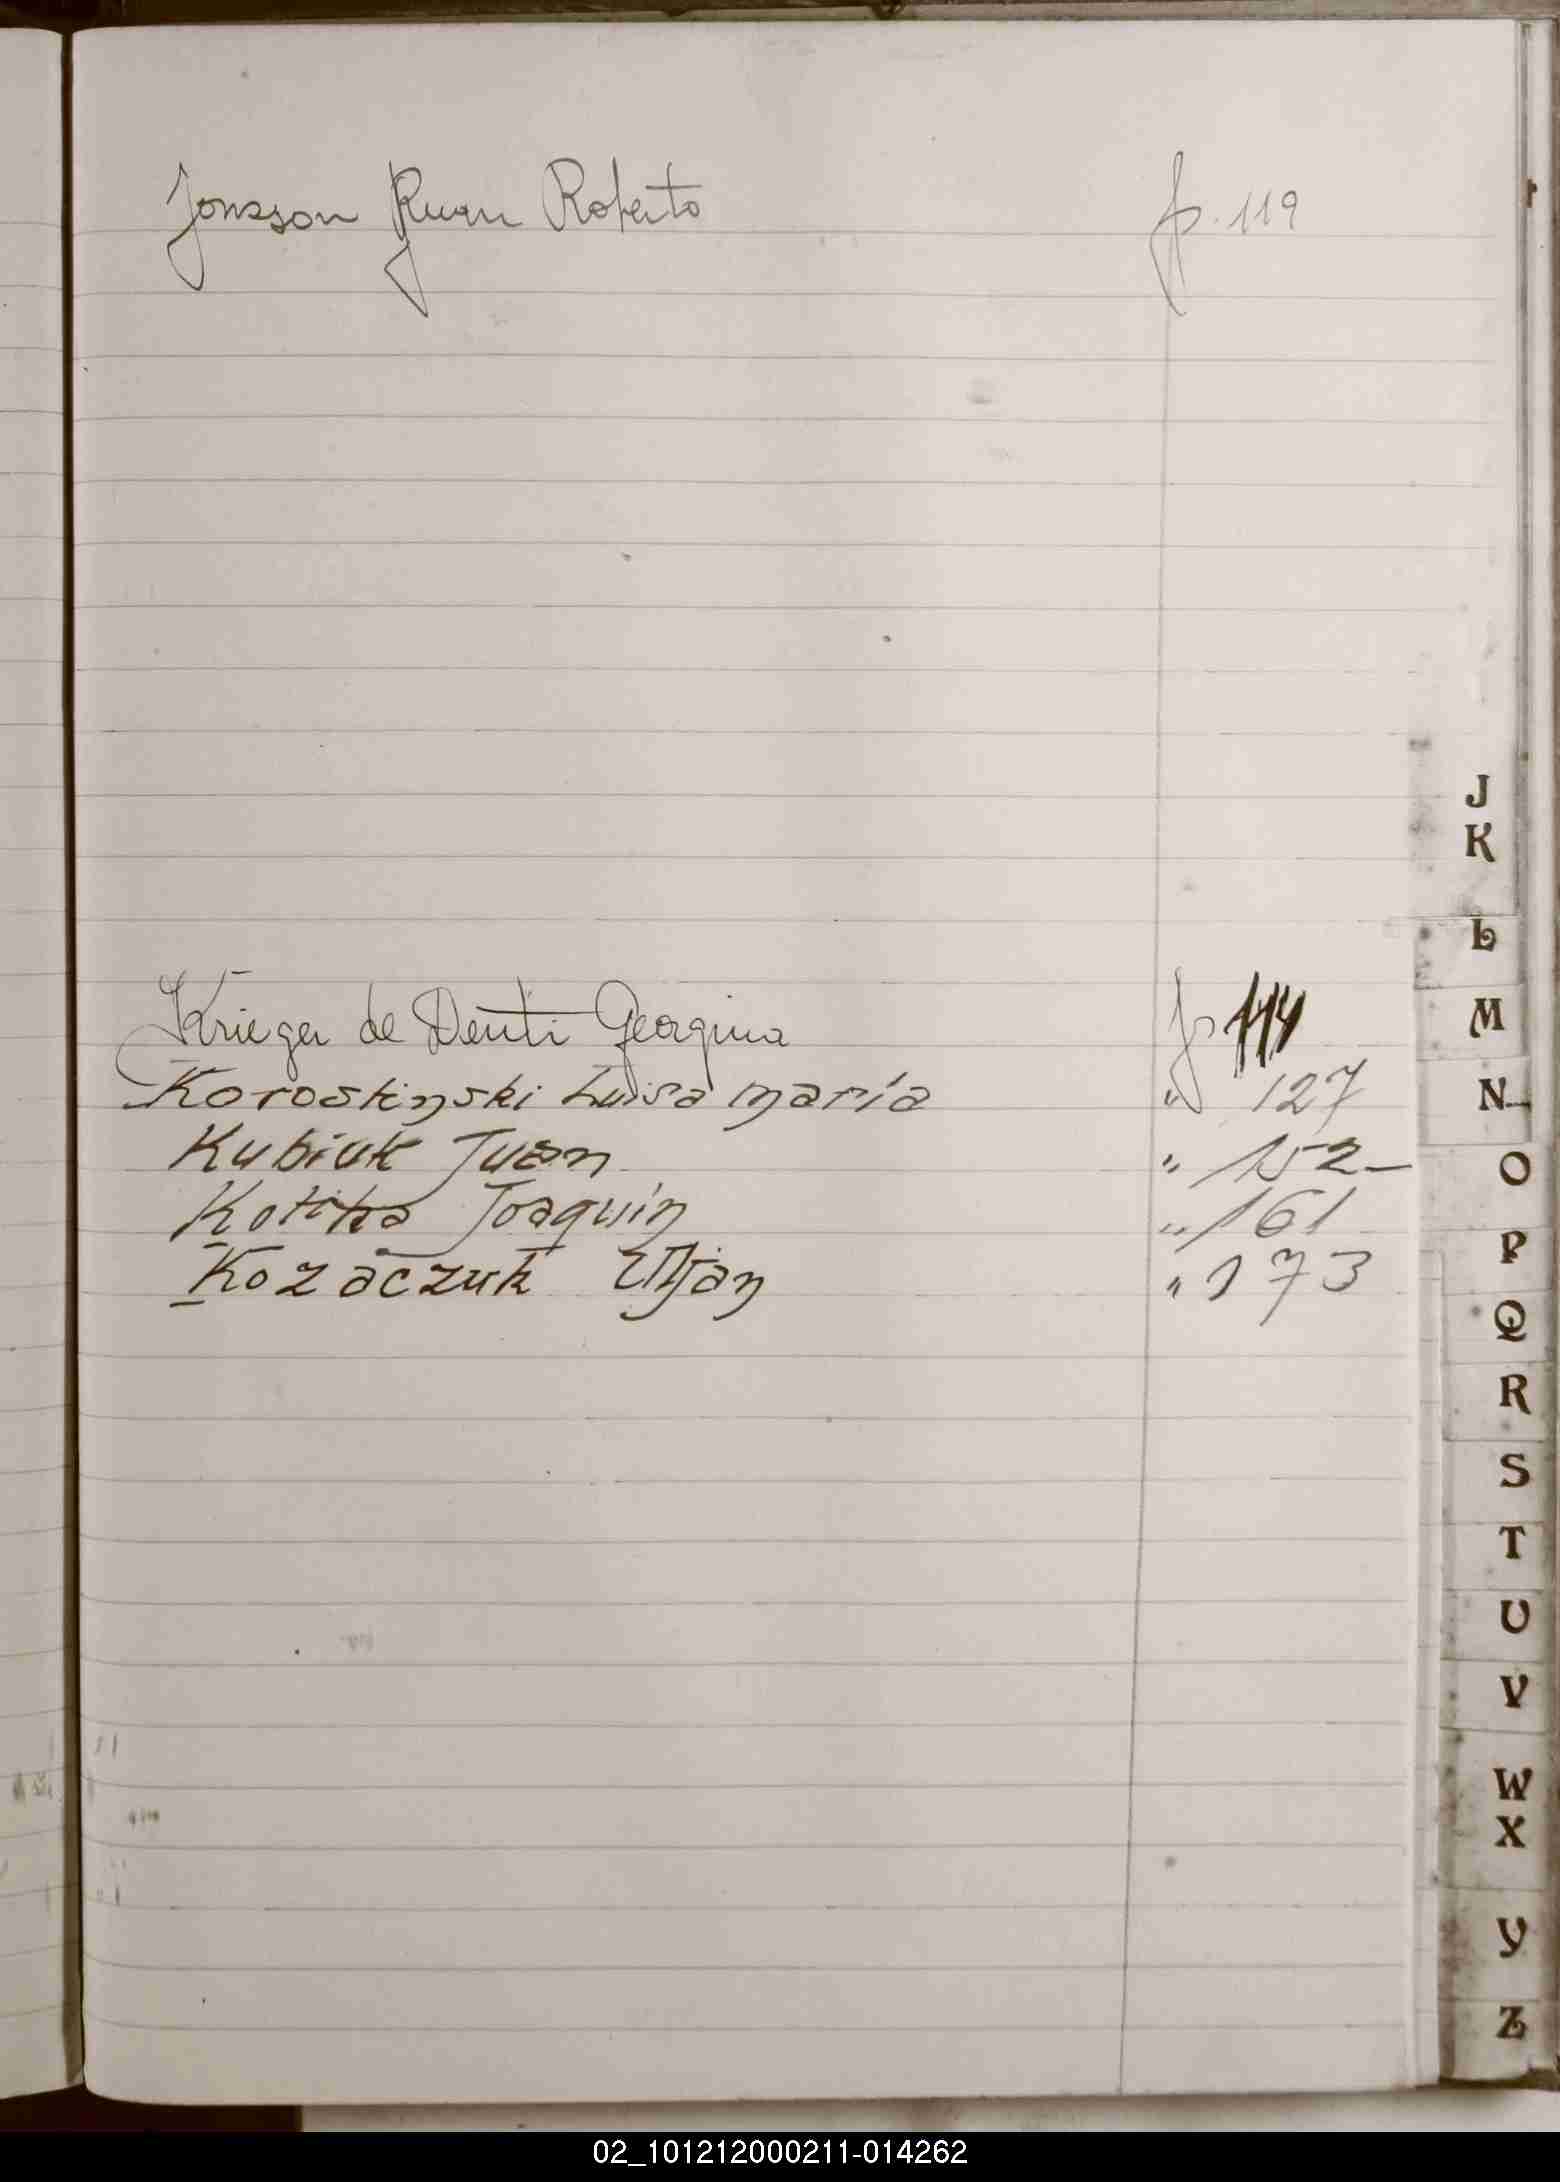 Jonsson Juan Roberto f. 119
J
K
L
Krieger de Denti Georgina f 114
M
Korostinski Luisa maría " 127
N
Kubiuk Juan " 152
O
Joaquín " 161
P
Kozaczuk " 173
Q
R
S
T
U
V
W
X
Y
Z
02_101212000211-014262